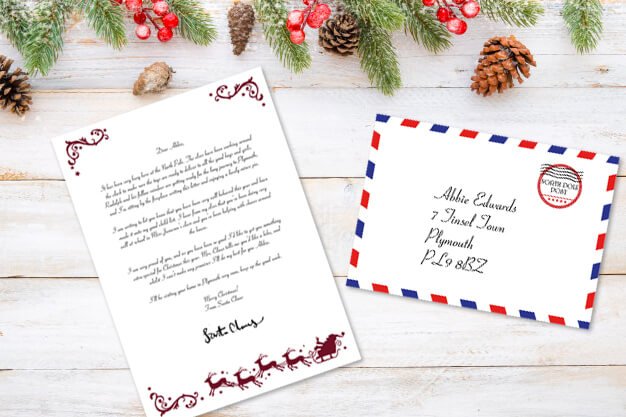 Dear Abbie,
It has been very busy here at the North Pole. The elves have been working around
the clock to make sure the toys are ready to deliver to all the good boys and girls.
Rudolph and his fellow reindeer are getting ready for the long journey to Plymouth,
and I'm sitting by the fireplace writing this letter and enjoying a lovely mince pie.
I am writing to let you know that you have been very well behaved this year and have
made it onto my good child list. I hear from my elves that you've been doing very
well at school in Miss class and you've been helping with chores around
the house.
I am very proud of you, and as you have been so good I'd like to get you something
extra special for Christmas this year. Mrs. Claus tells me you'd like a bike, and
whilst I can't make any promises I'll do my best for you Abbie.
I'll be visiting your home in Plymouth very soon, keep up the good work.
Merry Christmas!
From Santa Claus
Santa Claus
NORTH POLE
POST
Abbie Edwards
7 Tinsel Town
Plymouth
PL9 8BZ